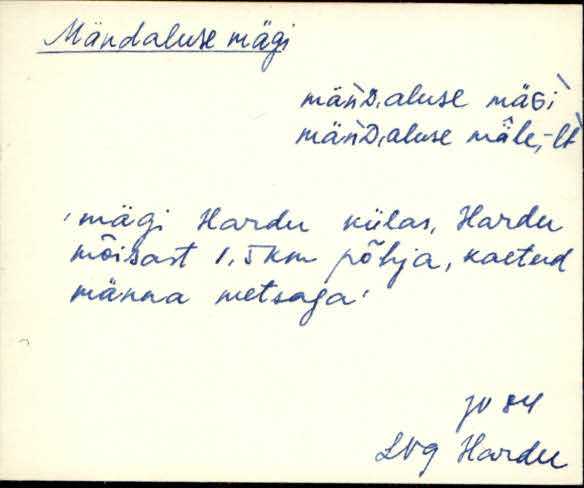 Mändaluse mägi
mäǹD,aluse mäGì
mäǹD,aluse mäle, -lt
'mägi Hardu külas, Hardu
mõisast 1,5 km põhja, kaetud
männa metsaga'
JV 84
LVg Hardu